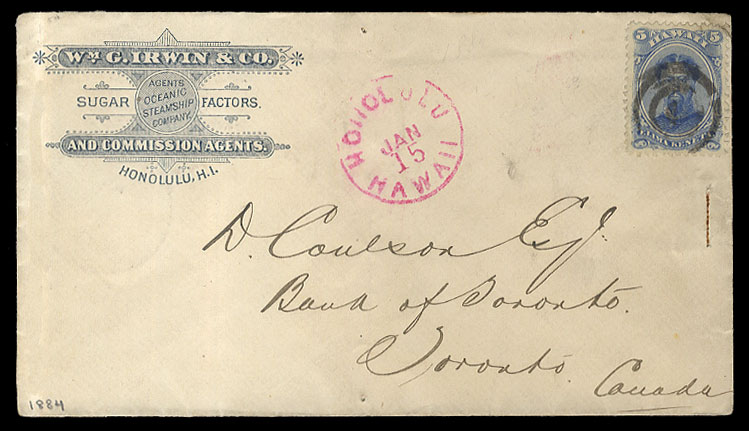 WM G. IRWIN & CO.
AGENTS
OCEANIC
STEAMSHIP
COMPANY.
SUGAR FACTORS.
AND COMMISSION AGENTS.
HONOLULU, H.I.
HONOLULU
JAN
15
HAWAII
5 HAWAII 5
ELIMA KENETA
D. Coulson Esq.
Bank of Toronto.
Toronto
Canada
1884